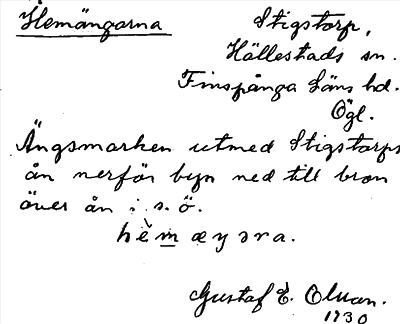 Hemängarna
Stigstorp,
Hällestads sn.
Finspånga Läns hd.
Ögl.
Ängsmarken utmed Stigstorps
ån nerför byn ned till bron
över ån i s.ö.
hèmæŋɔra.
Gustaf E. Olsson.
1930